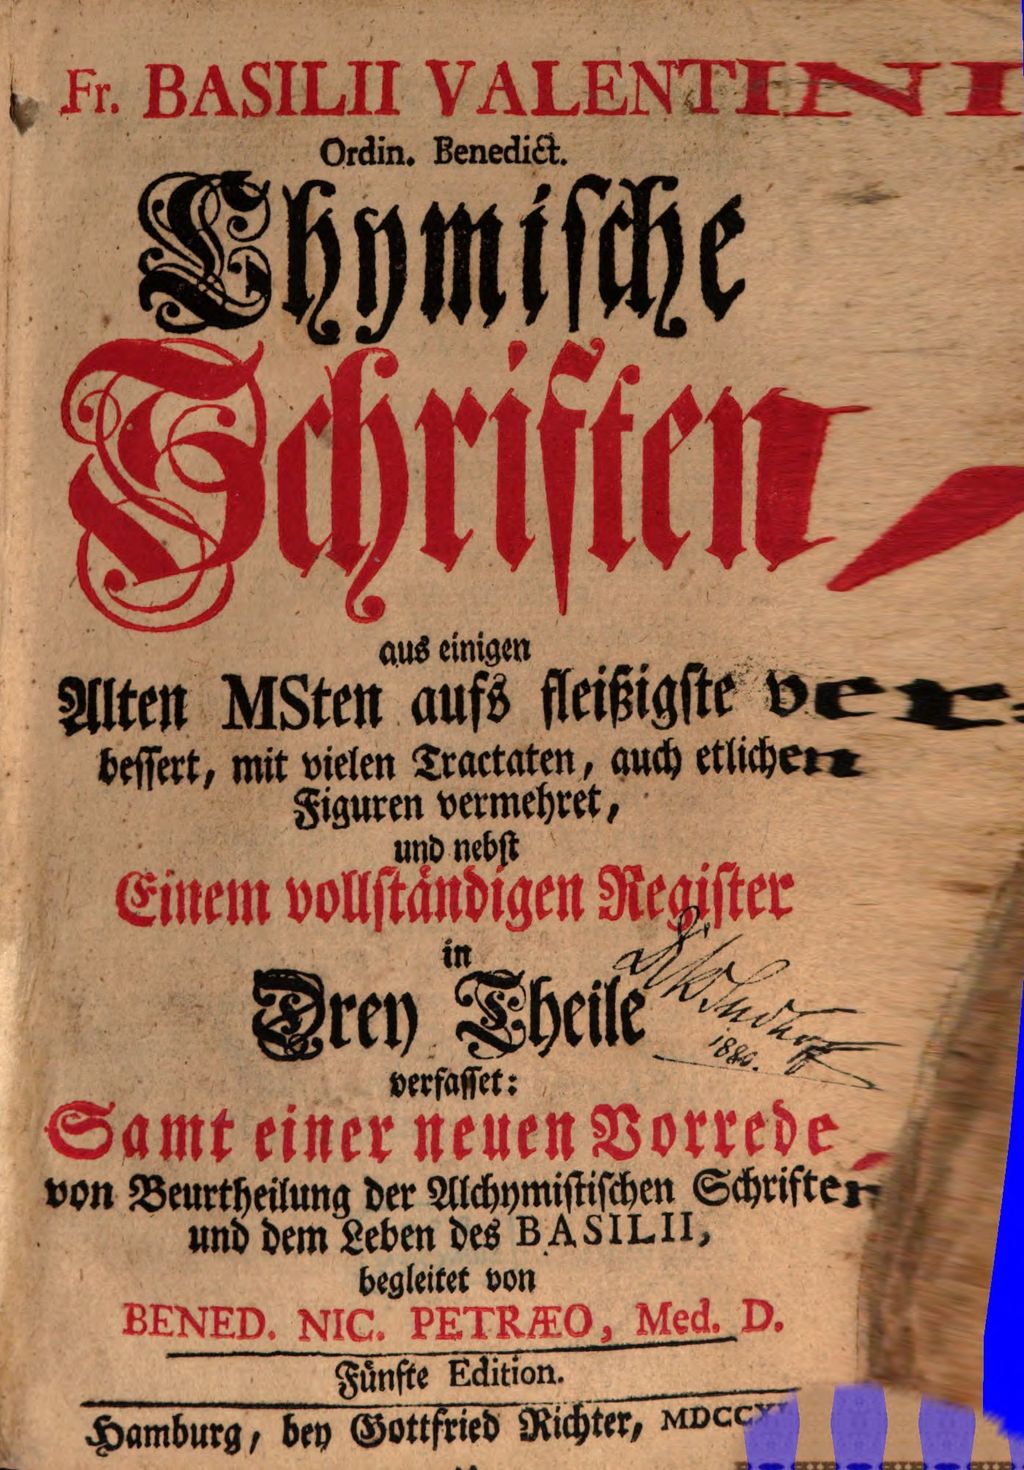 Fr. BASILII VALENTINI
Ordin. Benedict.
Chymische
Schriften,
aus einigen
Alten MSten aufs fleißigste ver-
bessert, mit vielen Tractaten, auch etlichen
Figuren vermehret,
und nebst
Einem vollständigen Register
in
Drey Theile
verfasset:
1880.
Samt einer neuen Vorrede,
von Beurtheilung der Alchymistischen Schriften
und dem Leben des BASILII,
begleitet von
BENED. NIC. PETRÆO, Med. D.
Fünfte Edition.
Hamburg, bey Gottfried Richter,